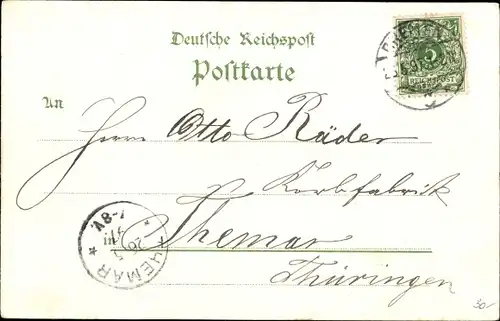 Deutsche Reichspost
Postkarte
5
REICHSPOST
An
Herrn Otto Räder
Korbfabrik
Themar
Thüringen
THEMAR
7-8V.
30.-